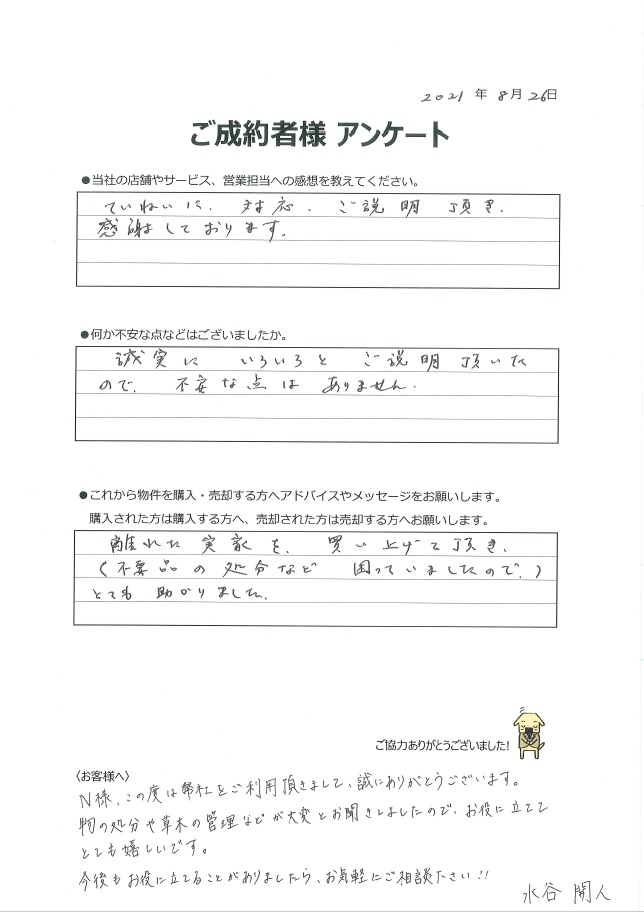 2021 年 8 月 26日
ご成約者様 アンケート
●当社の店舗やサービス、営業担当への感想を教えてください。
ていねいに、対応、ご説明頂き、
感謝しております。
●何か不安な点などはございましたか。
誠実にいろいろとご説明頂いた
ので、不安な点はありません。
●これから物件を購入・売却する方へアドバイスやメッセージをお願いします。
購入された方は購入する方へ、売却された方は売却する方へお願いします。
離れた実家を、買い上げて頂き、
(不要品の処分など困っていましたので、)
とても助かりました。
ご協力ありがとうございました!
〈お客様へ〉
N様、この度は弊社をご利用頂きまして、誠にありがとうございます。
物の処分や草木の管理などが大変とお聞きしましたので、お役に立てて
とても嬉しいです。
今後もお役に立てることがありましたら、お気軽にご相談ください!!
水谷 開人